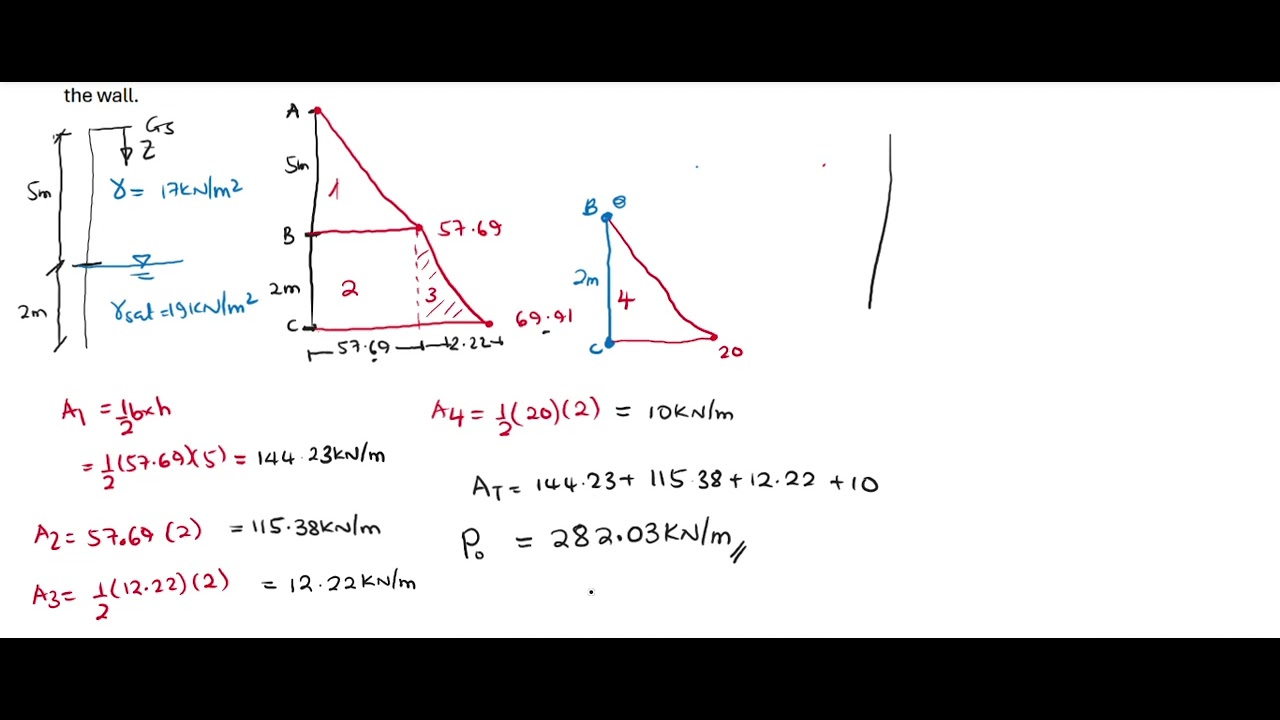 the wall.
GS
Z
5m
γ= 17KN/m²
2m
γsat=19KN/m²
A
5m
1
B
57.69
2m
2
3
C
69.91
57.69
12.22
B
2m
4
C
20
A1 = 1/2 b×h
= 1/2 (57.69)(5) = 144.23KN/m
A2= 57.69 (2) = 115.38KN/m
A3= 1/2 (12.22)(2) = 12.22KN/m
A4= 1/2 (20)(2) = 10KN/m
AT= 144.23+ 115.38+12.22 +10
Po = 282.03KN/m